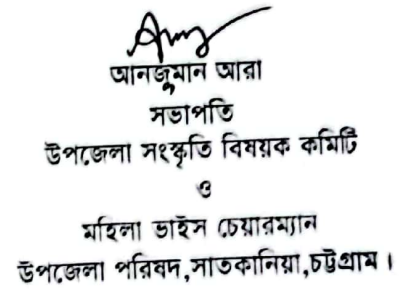 আনজুমান আরা
সভাপতি
উপজেলা সংস্কৃতি বিষয়ক কমিটি
ও
মহিলা ভাইস চেয়ারম্যান
উপজেলা পরিষদ,সাতকানিয়া,চট্টগ্রাম।